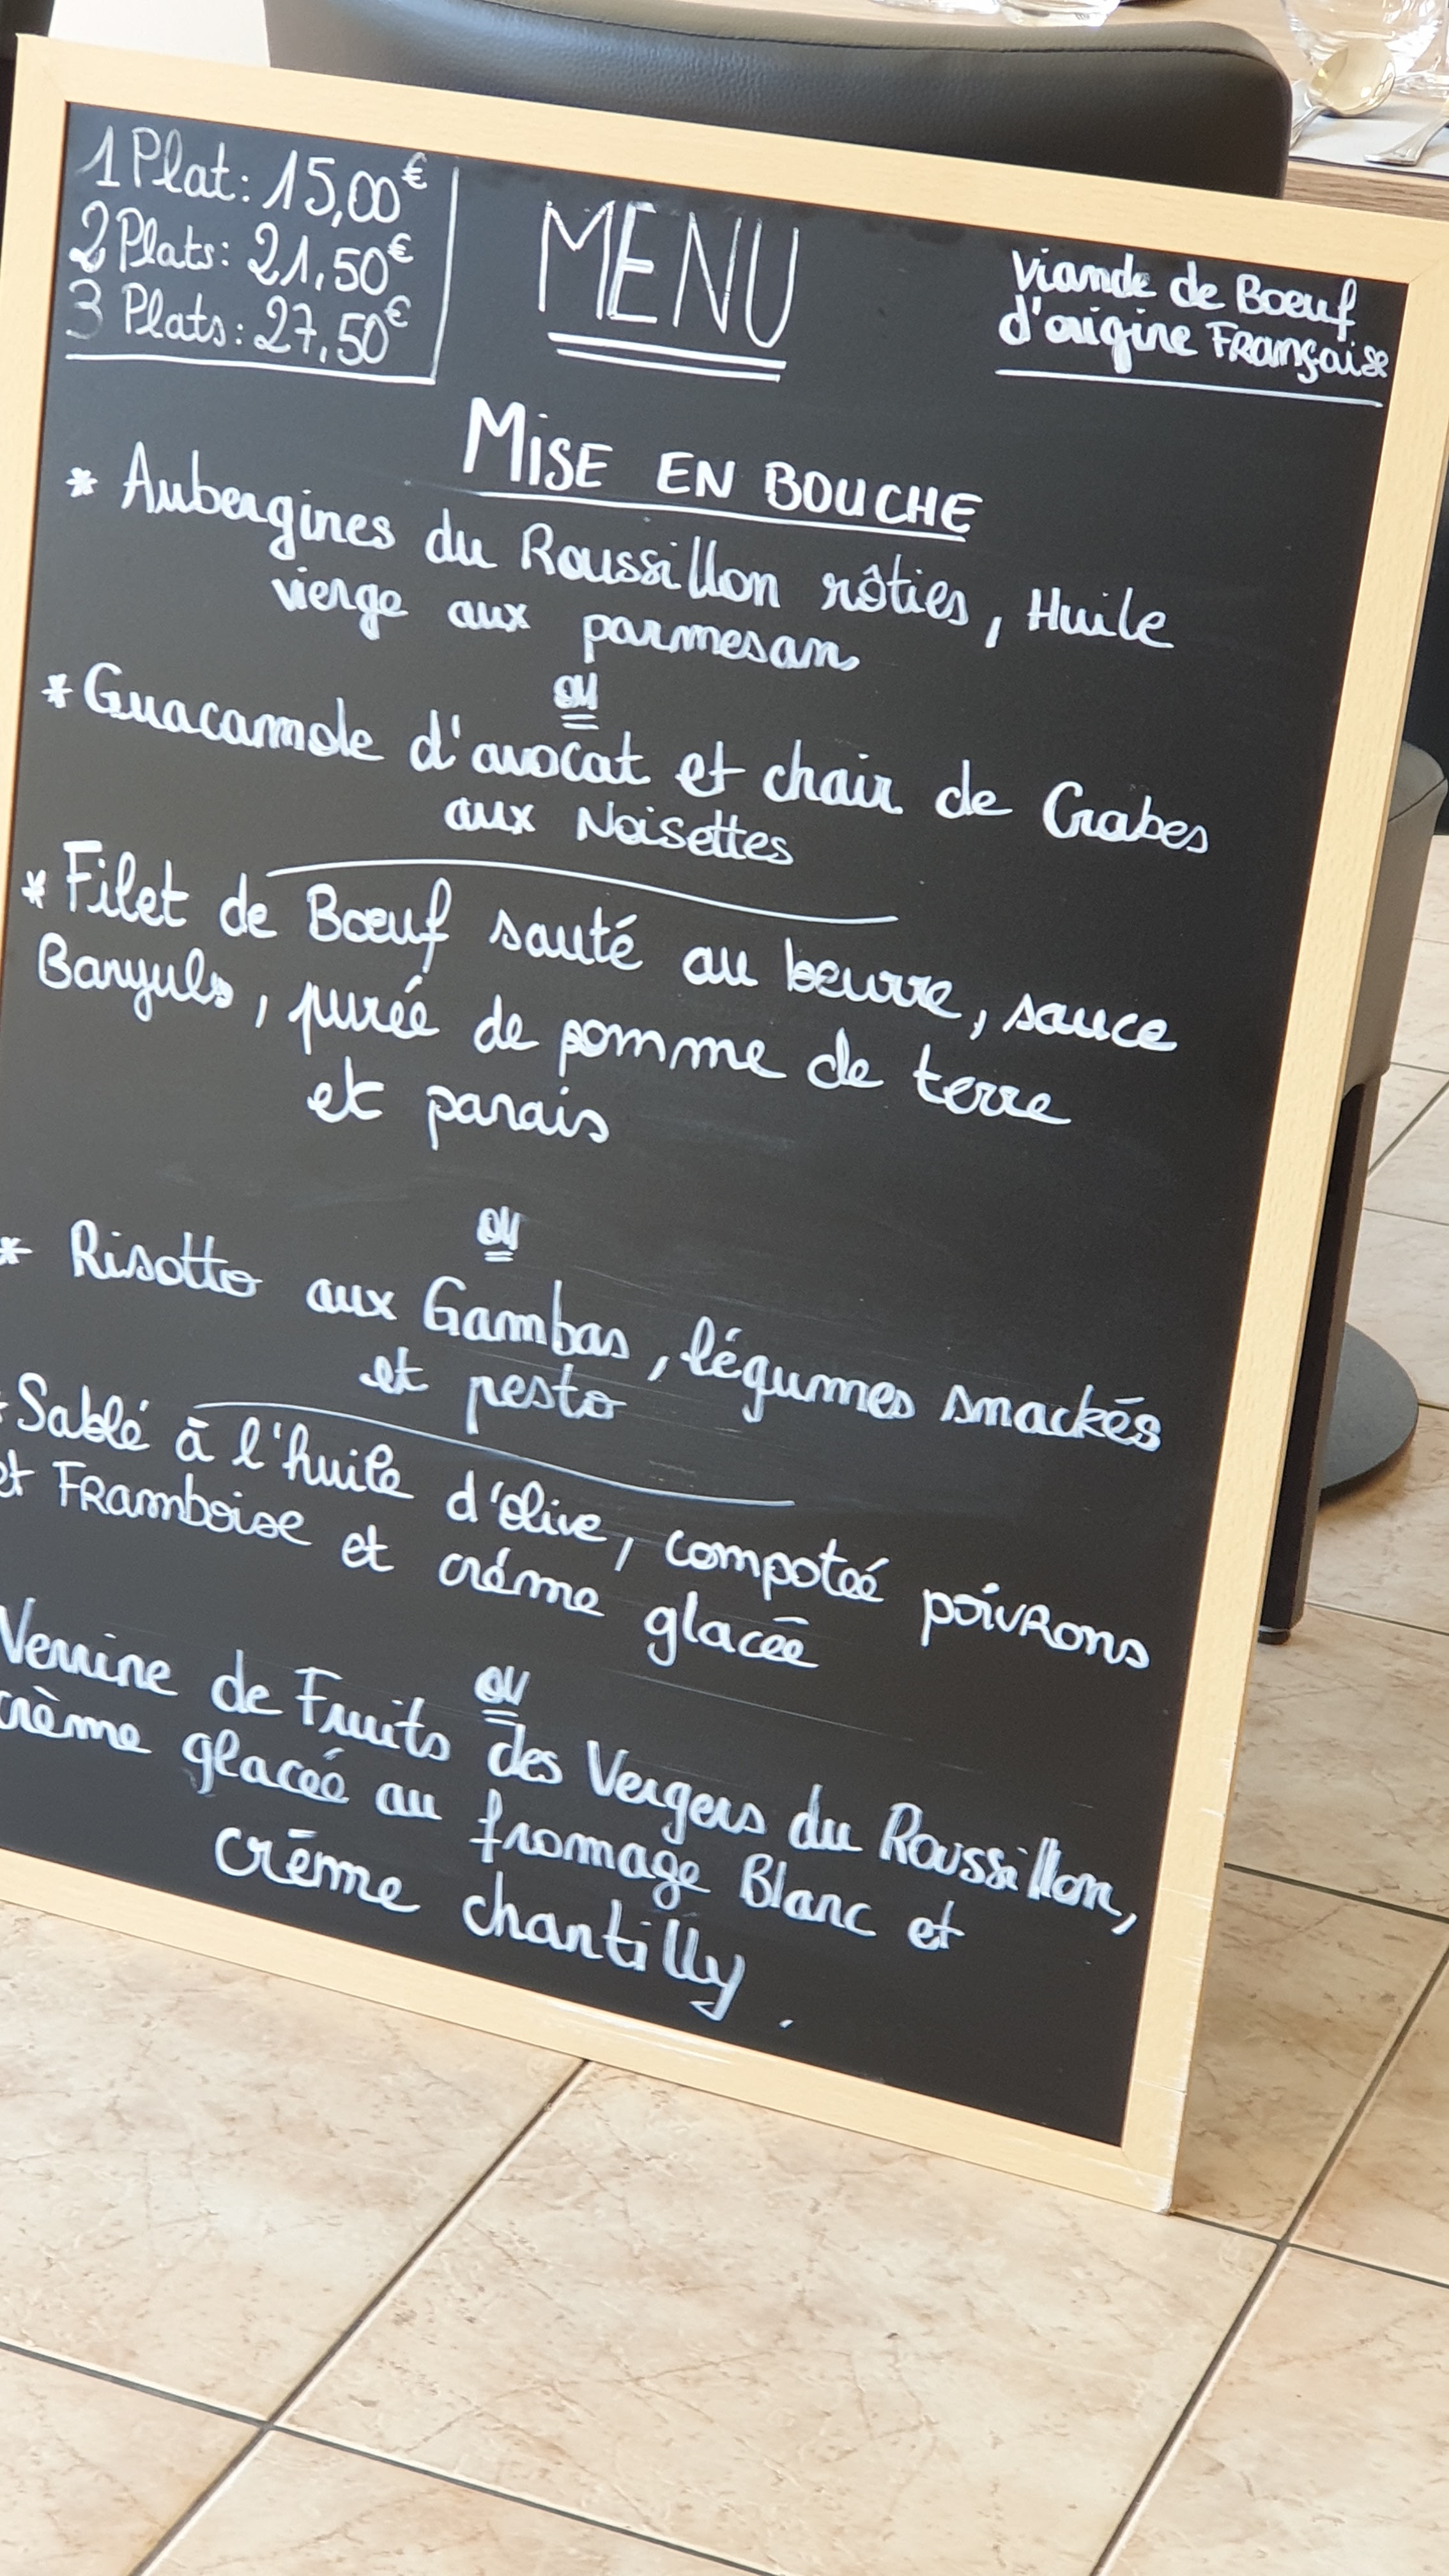 1 Plat: 15,00€
2 Plats: 21,50€
3 Plats: 27,50€
MENU
Viande de Boeuf
d'origine Française
MISE EN BOUCHE
* Aubergines du Roussillon rôties, Huile
vierge aux parmesan
ou
* Guacamole d'avocat et chair de Crabes
aux Noisettes
* Filet de Bœuf sauté au beurre, sauce
Banyuls, purée de pomme de terre
et panais
ou
* Risotto aux Gambas, légumes snackés
et pesto
* Sablé à l'huile d'olive, compoteé poivrons
et Framboise et créme glacée
ou
Verrine de Fruits des Vergers du Roussillon,
crème glaceé au fromage Blanc et
crēme chantilly.